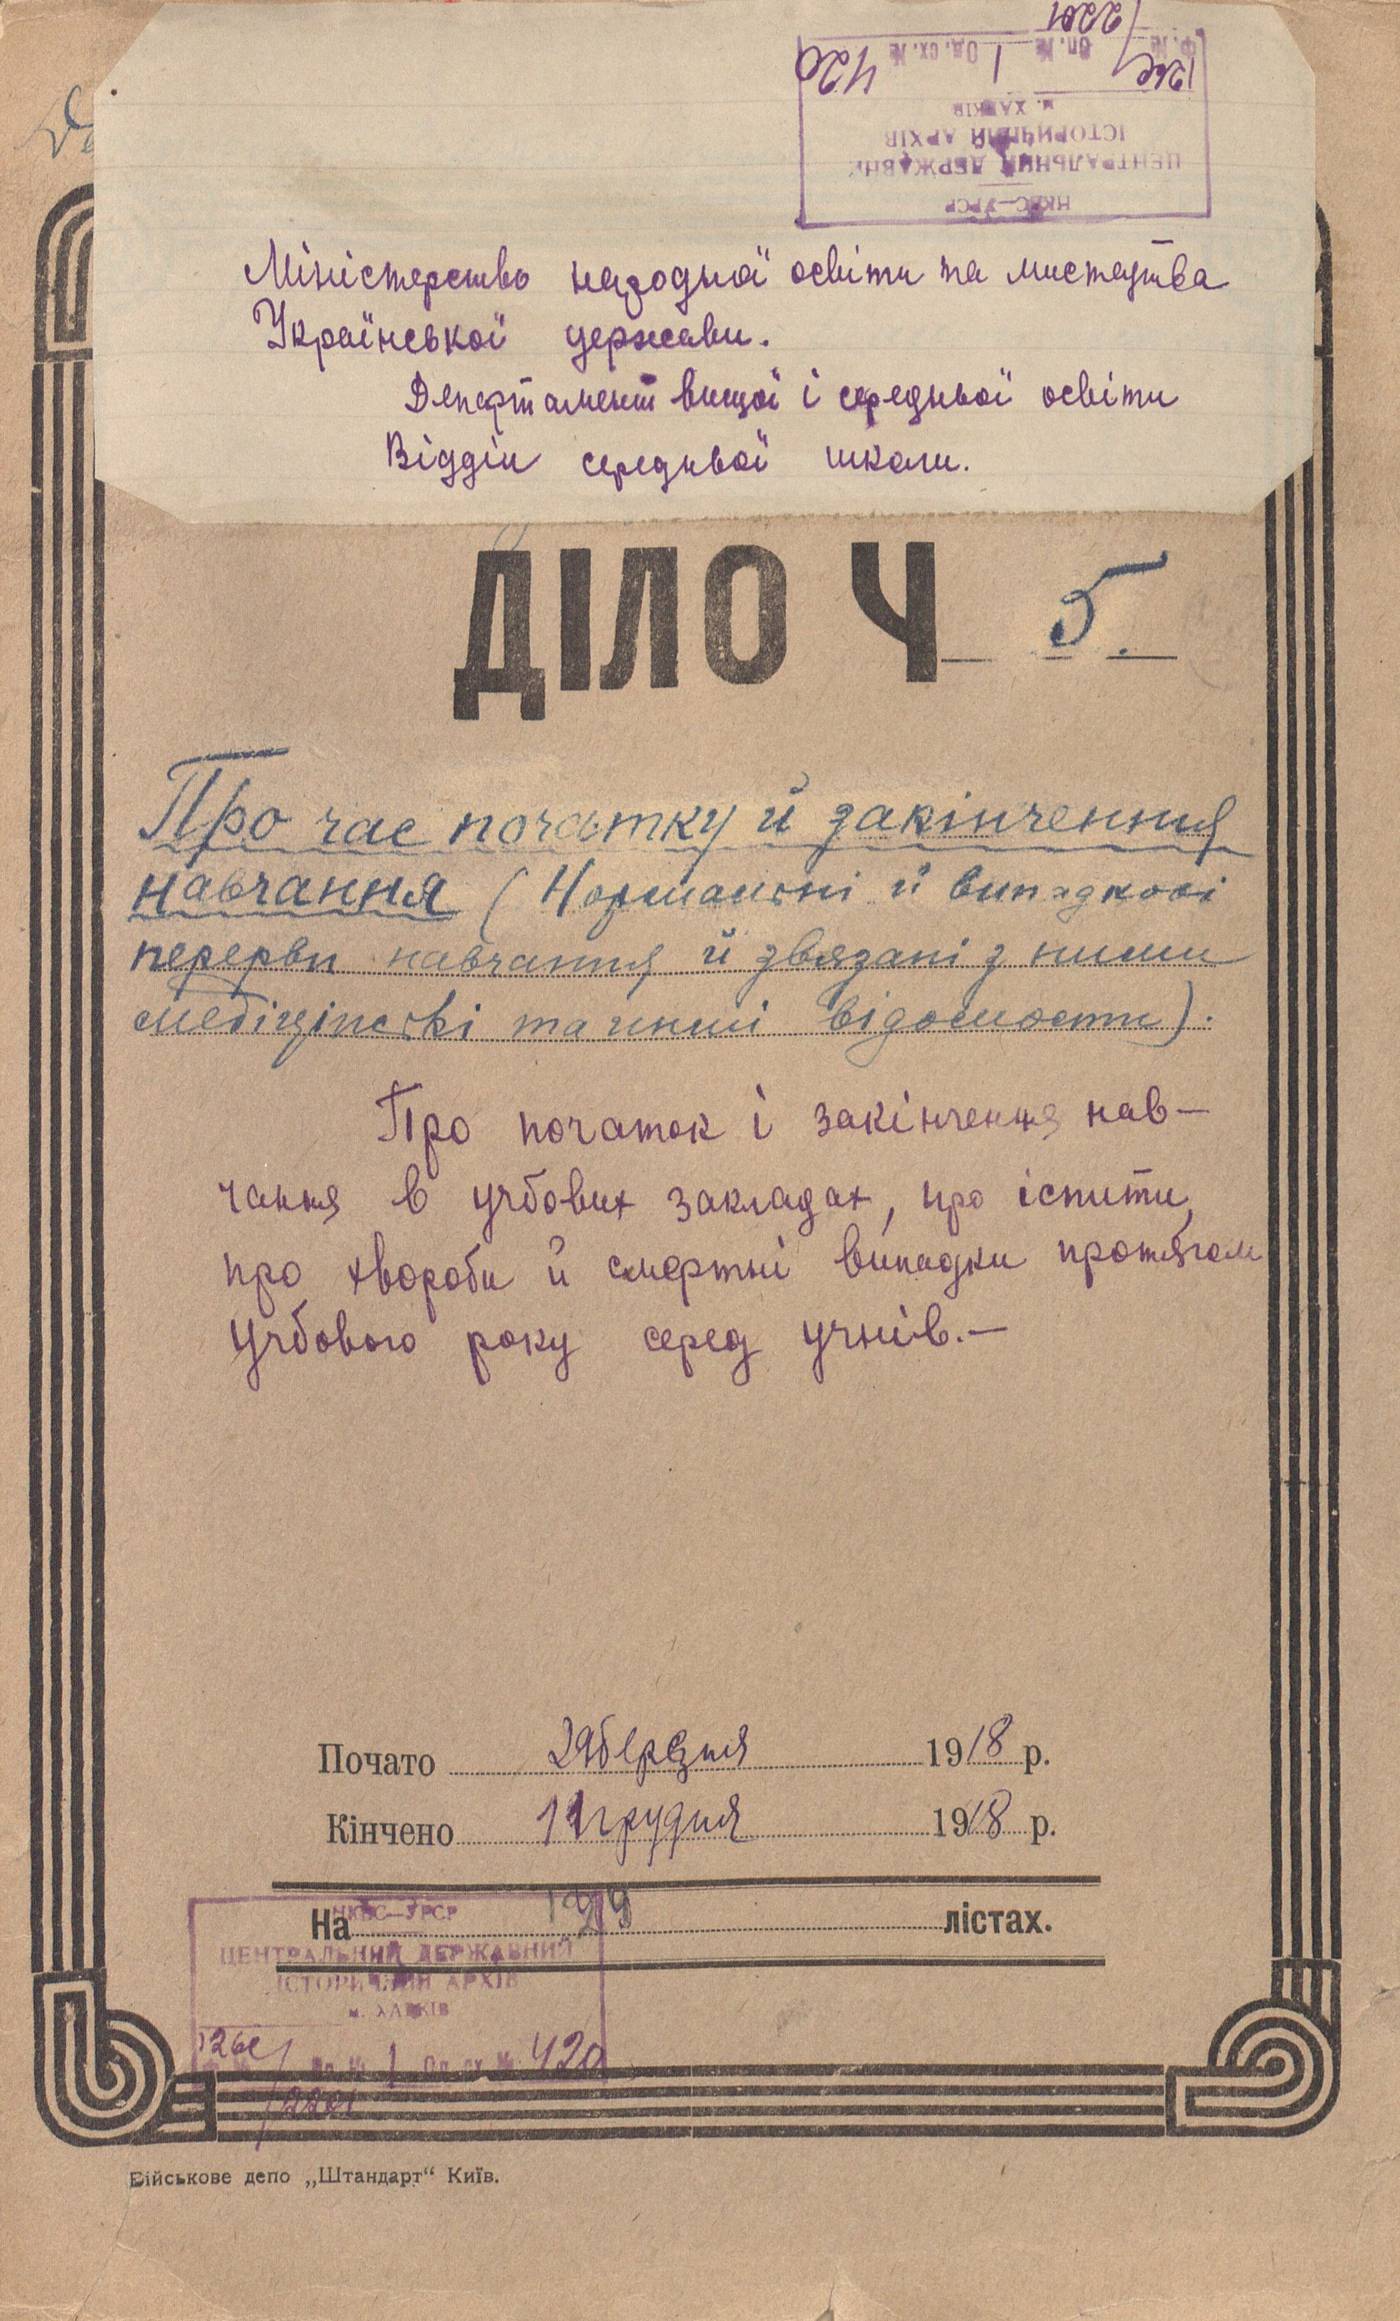 Ф. № 126с/2201 Оп. № 1 Од. сх. № 420
м. ХАРКІВ
ІСТОРИЧНИЙ АРХІВ
ЦЕНТРАЛЬНИЙ ДЕРЖАВН
НКВС—УРСР
Міністерство народної освіти та мистецтва
Української держави.
Департамент вищої і середньої освіти
Відділ середньої школи.
ДІЛО Ч 5.
Про час початку й закінчення
навчання (Нормальні й випадкові
перерви навчання й звязані з ними
медіцінські та инші відомости).
Про початок і закінчення нав—
чання в учбових закладах, про іспити,
про хвороби й смертні випадки протягом
учбового року серед учнів.—
Почато 29 березня 1918 р.
Кінчено 11 грудня 1918 р.
На 199 лістах.
НКВС—УРСР
ЦЕНТРАЛЬНИЙ ДЕРЖАВНИЙ
ІСТОРИЧНИЙ АРХІВ
м. ХАРКІВ
126с/2201 Оп. № 1 Од. сх. № 420
Військове депо „Штандарт“ Київ.